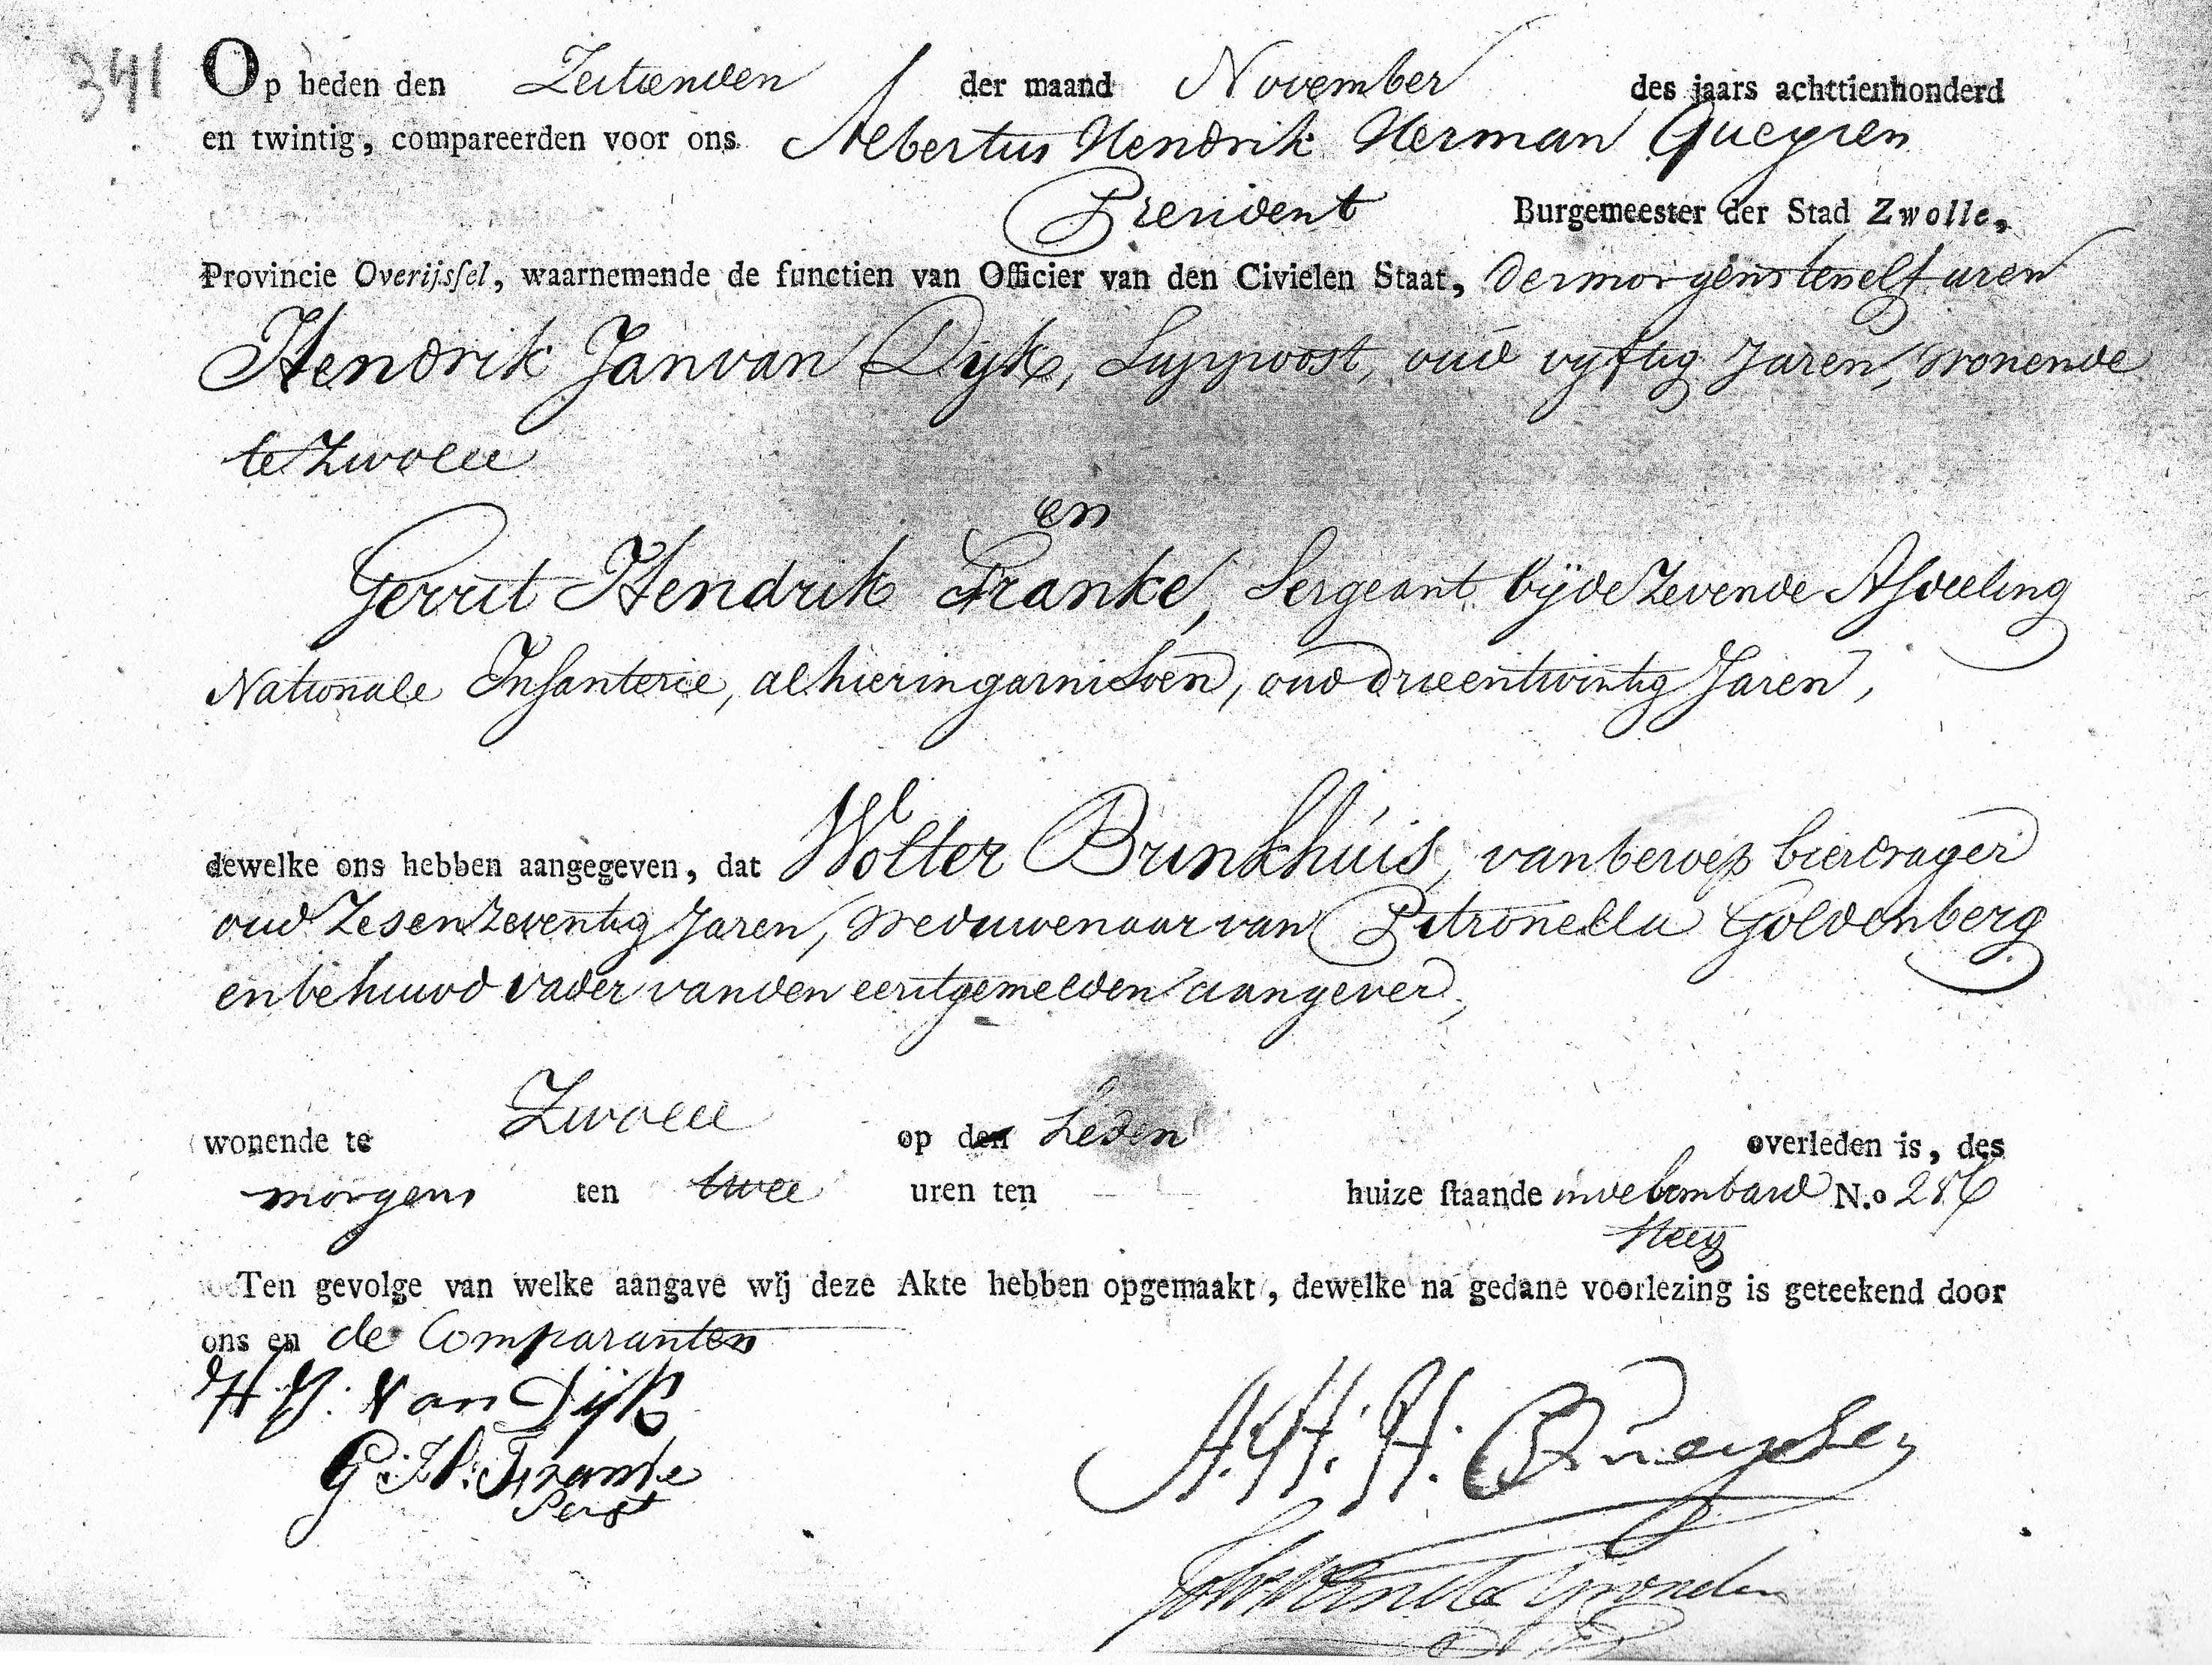 341
Op heden den Zestienden der maand November des jaars achttienhonderd
en twintig, compareerden voor ons Albertus Hendrik Herman Queysen
President Burgemeester der Stad Zwolle,
Provincie Overijssel, waarnemende de functien van Officier van den Civielen Staat, des morgens ten elf uren
Hendrik Jan van Dijk, Suppoost, oud vyftig Jaren, wonende
te Zwolle
en
Gerrit Hendrik Franke, Sergeant bij de Zevende Afdeeling
Nationale Infanterie, alhier in garnisoen, oud drieentwintig Jaren,
dewelke ons hebben aangegeven, dat Wolter Brinkhuis, van beroep bierdrager
oud Zesenzeventig Jaren, weduwenaar van Petronella Goldenberg
en behuwd vader van den eerstgemelden aangever,
wonende te Zwolle op den heden overleden is, des
morgens ten twee uren ten huize staande in de bombard N.o 286
steeg
Ten gevolge van welke aangave wij deze Akte hebben opgemaakt, dewelke na gedane voorlezing is geteekend door
ons en de Comparanten
H J: van Dijk
G: H: Franke
Sergt
A. H. H. Queysen